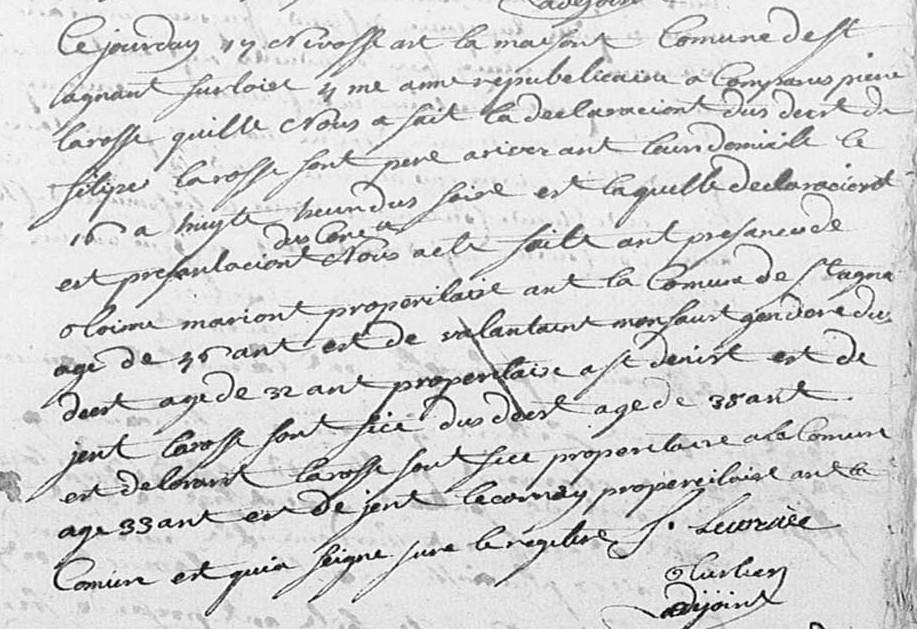 adijoint
Ce jourduy 17 Nivosse ant la maisont Comune de st
agnant surloier 4 me anne republicaine a Comparus piere
larosse quille Nous a fait la declaraciont dus decet de
filipe larosse sont pere ariver ant leur domicille le
16 a huyte heur dus soire est laquelle declaraciont
est presantaciont Nous a ete faite ant presance de
des Cence
mariont properitaire ant la Comune de st agna
age de 36 ant est de valantaint monsaut gendere dus
decet age de 32 ant properitaire a st denist est de
jent larosse sont fice dus decet age de 38 ant
est de lorant larosse sont fice properitaire a la Comune
age 33 ant est de jent properitaire ant la
Comune est quia seigne sure le registre
adijoint